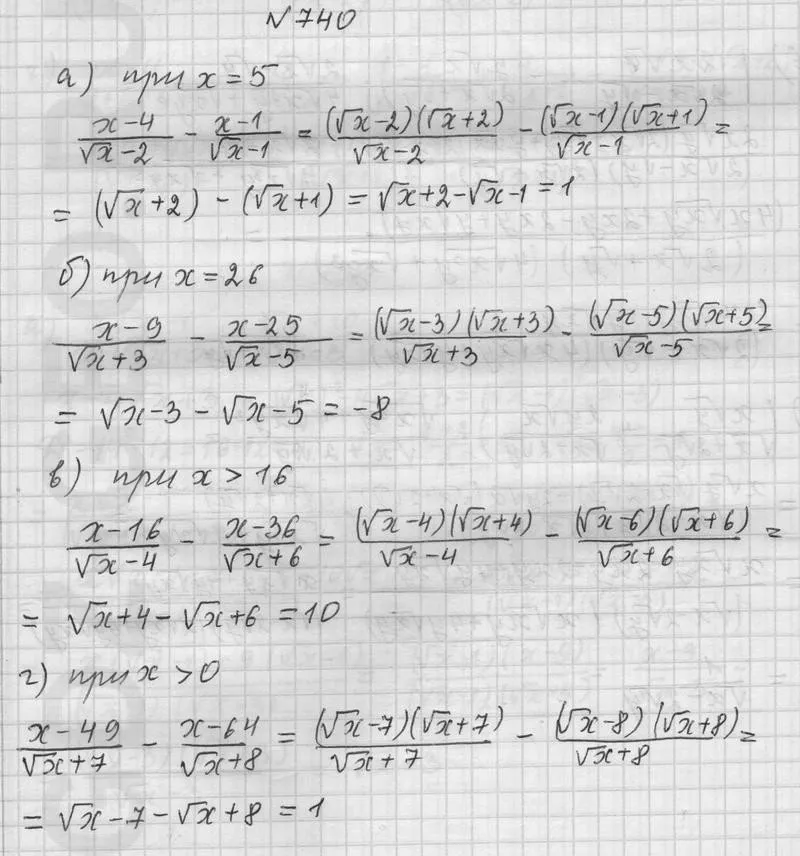 №740
а) при x = 5
(x-4)/(√x-2) - (x-1)/(√x-1) = ((√x-2)(√x+2))/(√x-2) - ((√x-1)(√x+1))/(√x-1) =
= (√x+2) - (√x+1) = √x+2-√x-1 = 1
б) при x = 26
(x-9)/(√x+3) - (x-25)/(√x-5) = ((√x-3)(√x+3))/(√x+3) - ((√x-5)(√x+5))/(√x-5) =
= √x-3 - √x-5 = -8
в) при x > 16
(x-16)/(√x-4) - (x-36)/(√x+6) = ((√x-4)(√x+4))/(√x-4) - ((√x-6)(√x+6))/(√x+6) =
= √x+4-√x+6 = 10
г) при x > 0
(x-49)/(√x+7) - (x-64)/(√x+8) = ((√x-7)(√x+7))/(√x+7) - ((√x-8)(√x+8))/(√x+8) =
= √x-7-√x+8 = 1